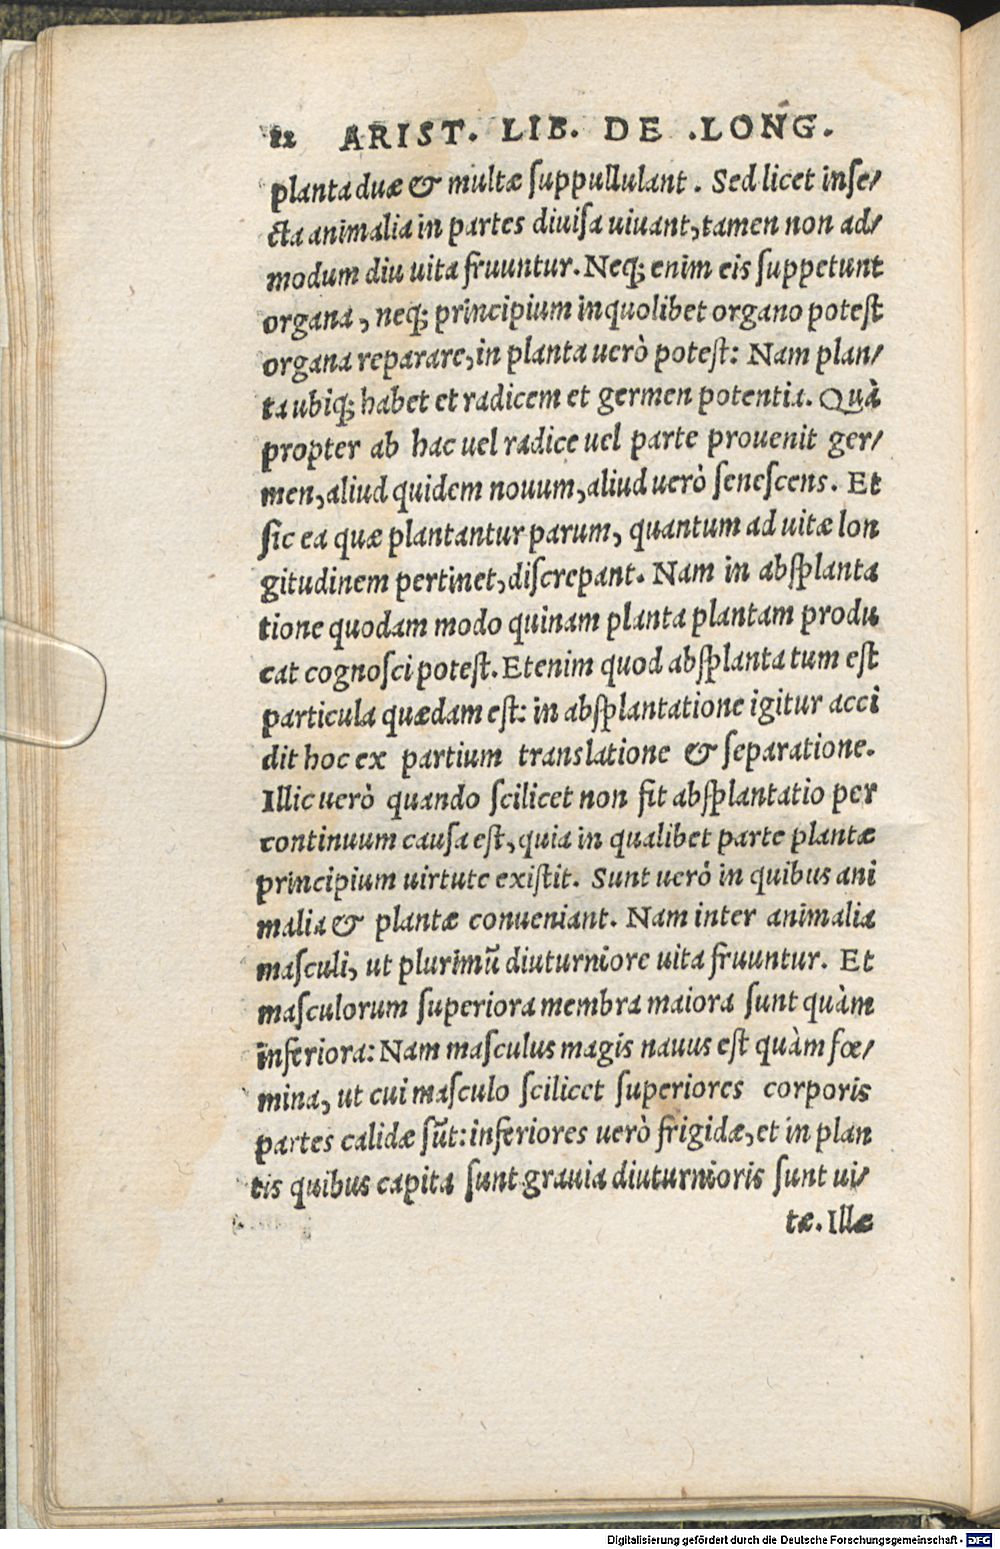 22 ARIST. LIB. DE .LONG.
planta duæ & multæ ſuppullulant. Sed licet inſe/
cta animalia in partes diuiſa uiuant, tamen non ad/
modum diu uita fruuntur. Neq; enim eis ſuppetunt
organa, neq; principium in quolibet organo poteſt
organa reparare, in planta uerò poteſt: Nam plan/
ta ubiq; habet et radicem et germen potentia. Quà
propter ab hac uel radice uel parte prouenit ger/
men, aliud quidem nouum, aliud uerò ſeneſcens. Et
ſic ea quæ plantantur parum, quantum ad uitæ lon
gitudinem pertinet, diſcrepant. Nam in abſplanta
tione quodam modo quinam planta plantam produ
cat cognoſci poteſt. Etenim quod abſplantatum eſt
particula quædam eſt: in abſplantatione igitur acci
dit hoc ex partium translatione & ſeparatione.
Illic uerò quando ſcilicet non fit abſplantatio per
continuum cauſa eſt, quia in qualibet parte plantæ
principium uirtute exiſtit. Sunt uerò in quibus ani
malia & plantæ conueniant. Nam inter animalia
maſculi, ut plurimū diuturniore uita fruuntur. Et
maſculorum ſuperiora membra maiora ſunt quàm
inferiora: Nam maſculus magis nauus eſt quàm fœ/
mina, ut cui maſculo ſcilicet ſuperiores corporis
partes calidæ ſūt: inferiores uerò frigidæ, et in plan
tis quibus capita ſunt grauia diuturnioris ſunt ui/
tæ. Illæ
Digitalisierung gefördert durch die Deutsche Forschungsgemeinschaft - DFG